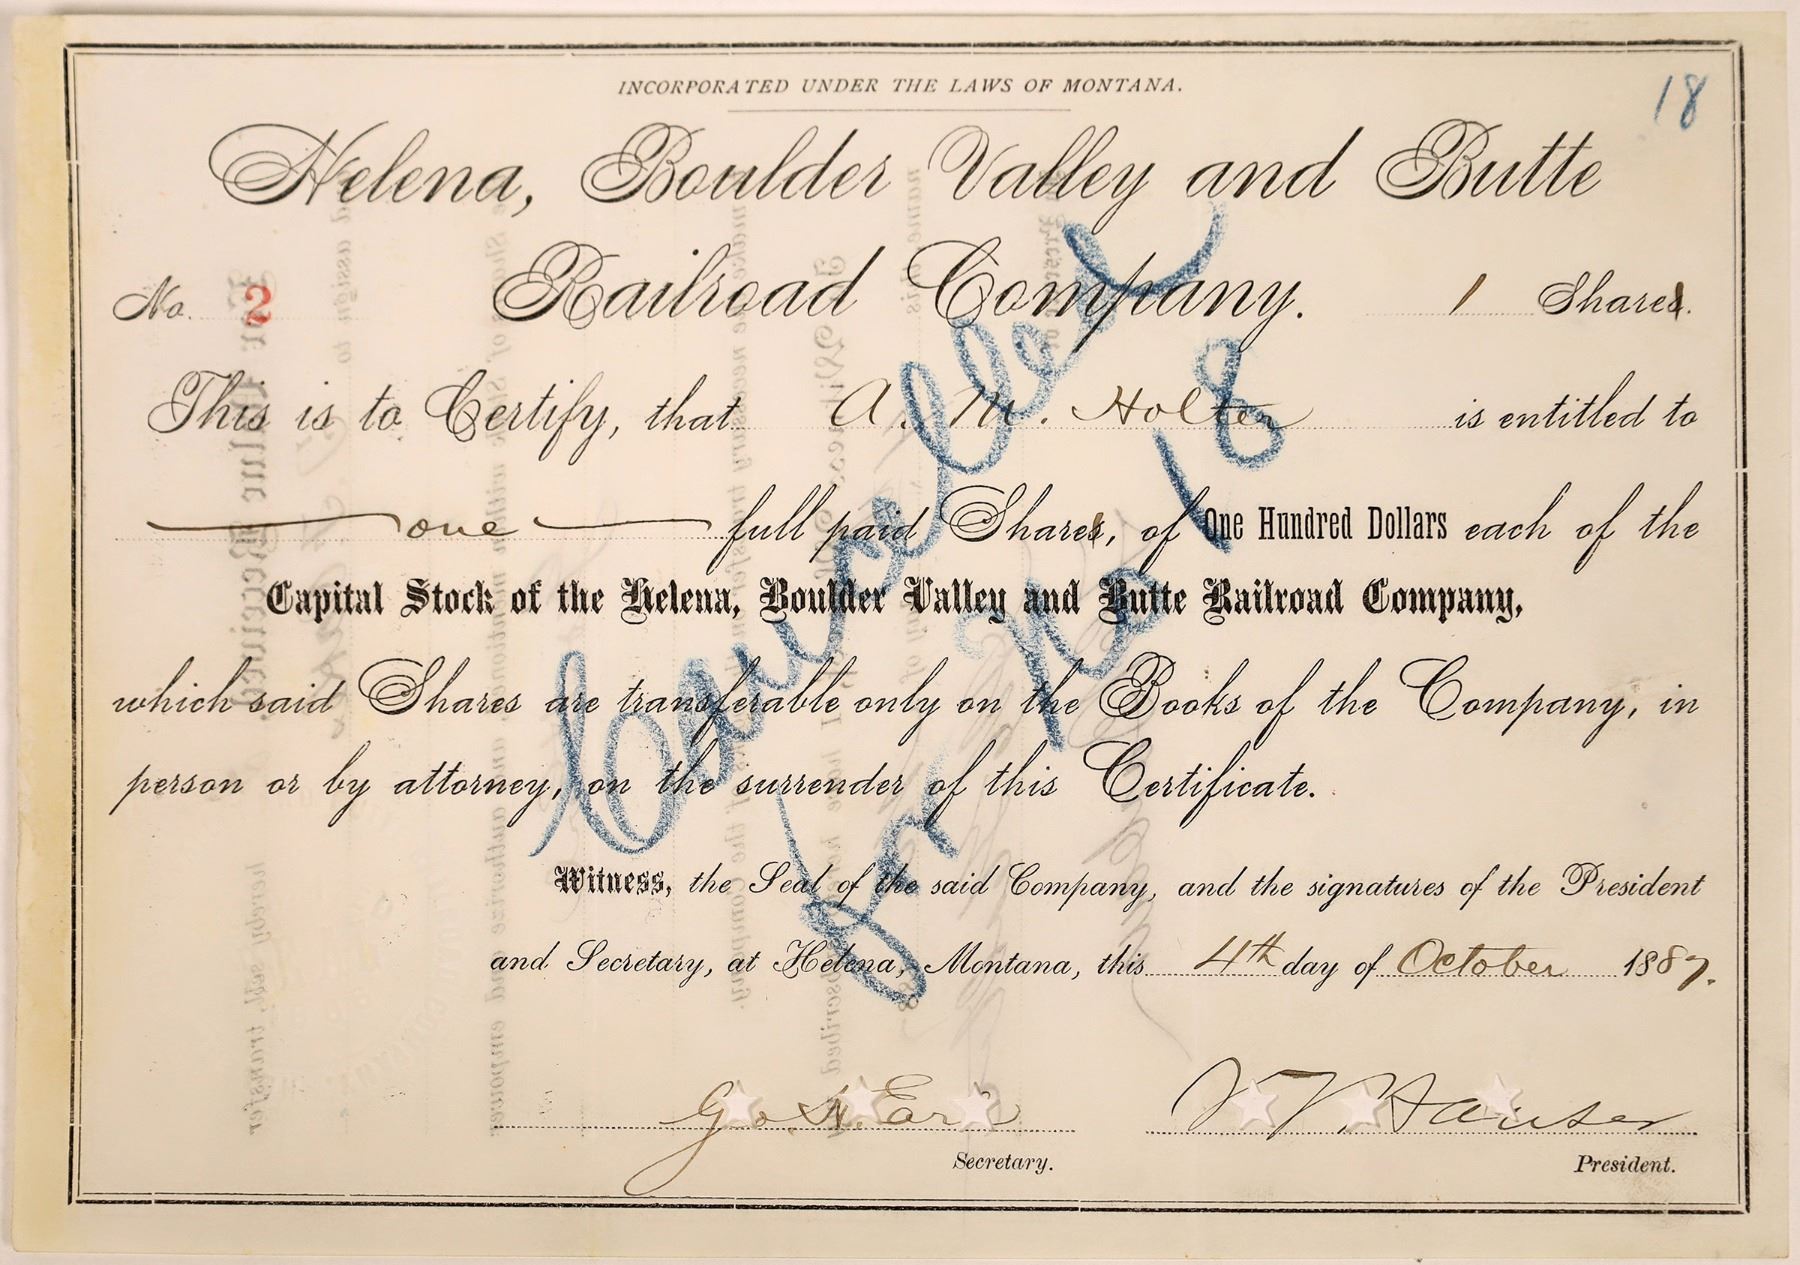 INCORPORATED UNDER THE LAWS OF MONTANA.
18
Helena, Boulder Valley and Butte
Railroad Company.
No. 2
1 Share.
This is to Certify, that A. M. Holter is entitled to
one full paid Share, of One Hundred Dollars each of the
Capital Stock of the Helena, Boulder Valley and Butte Railroad Company,
which said Shares are transferable only on the Books of the Company, in
person or by attorney, on the surrender of this Certificate.
Witness, the Seal of the said Company, and the signatures of the President
and Secretary, at Helena, Montana, this 4th day of October 1887.
Cancelled
No 18
Secretary.
Hauser
President.